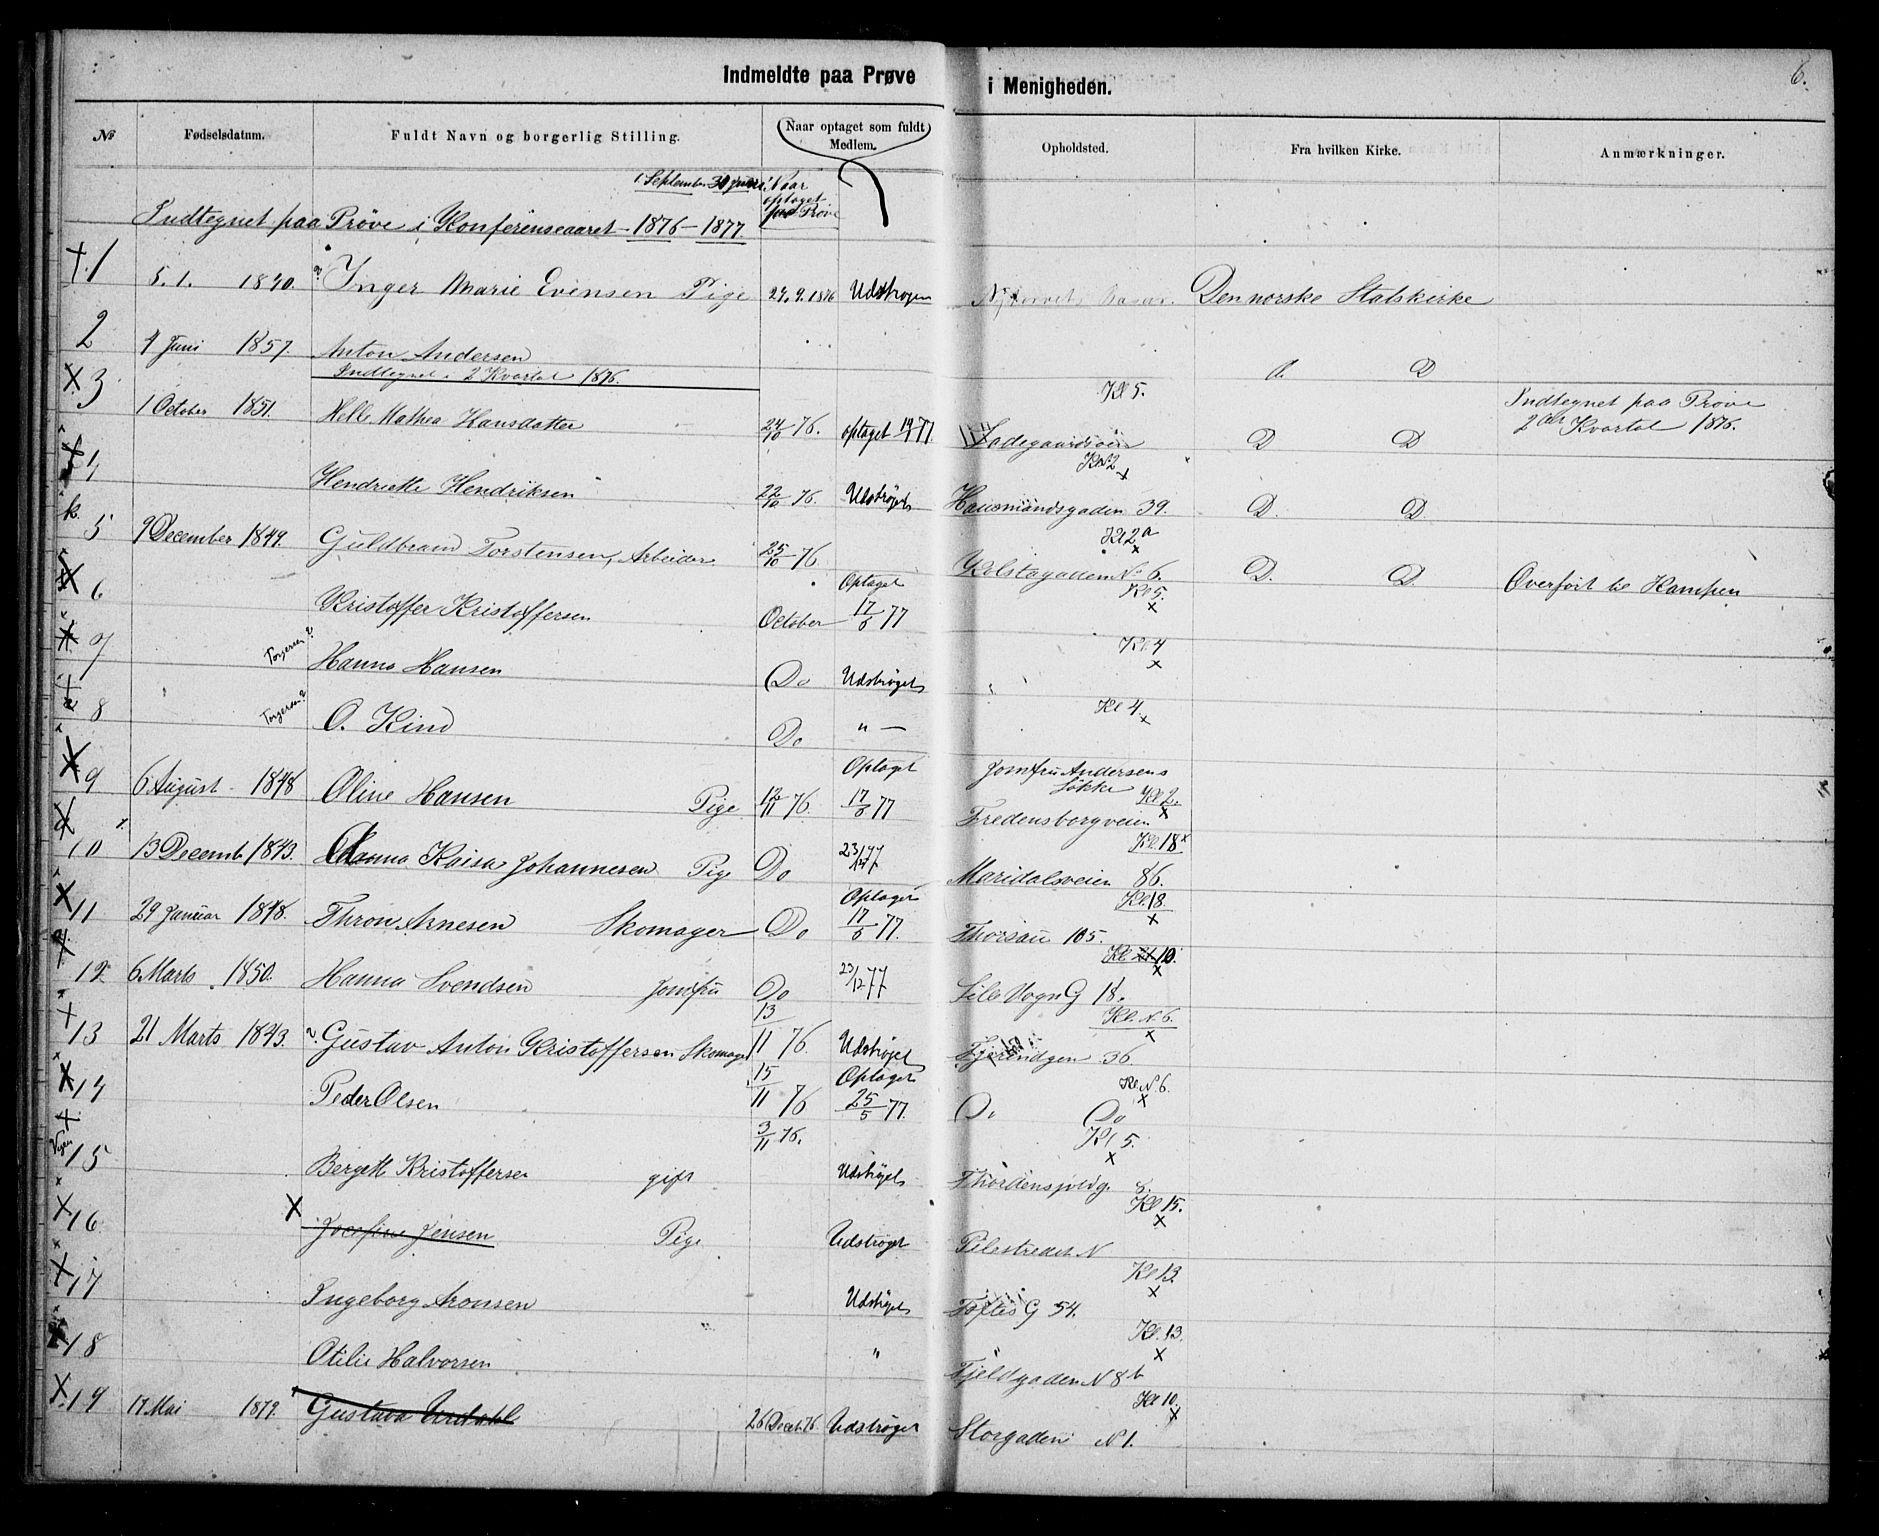 Indmeldte paa Prøve i Menigheden.
6.
№ Fødselsdatum. Fuldt Navn og borgerlig Stilling. Naar optaget som fuldt Medlem. Opholdsted. Fra hvilken Kirke. Anmærkninger.
1 September 30 Juni Naar optaget paa Prøve
Indtegnet paa Prøve i Konferenseaaret 1876 – 1877.
1 5. 1. 1840. Inger Marie Evensen Pige 24. 9. 1876 Udstrøgen Den norske Statskirke
2 4 Juni 1857. Anton Andersen D
Indtegnet i 2 Kvartal 1876.
Kl 5. Indtegnet paa Prøve
3 1 October 1851. Helle Mathea Hansdatter 24/10 76. optaget 77 Ladegaardsøen D D 2det Kvartal 1876.
Kl 2
4 Hendriette Hendriksen 22/10 76. Udströget Hausmandsgaden 39. D. D.
Kl 2a
5 9 December 1849. Guldbrand Torstensen, Arbeider 25/10 76 No 6. D. D. Overført til Kampen
Optaget Kl 5.
6 Kristoffer Kristoffersen October 17/6 77
Kl 4
7 Torgersen? Hanna Hansen Do Udströget
Kl 4
8 Torgersen? O. Kind Do " —
Optaget Jomfru Andersens Løkke
9 6 August 1848 Oline Hansen Pige 12/11 76. 17/6 77 Kl 2.
Fredensborgveien
Kl 18
10 13 Decemb 1843. Anna Kaisa Johannesen Pige Do 23/12 77 Maridalsveien 86.
Optaget Kl 18.
11 29 Januar 1848. Thron Arnesen Skomager Do 17/6 77. Thorsau 105.
Kl 10.
12 6 Marts 1850. Hanna Svendsen Jomfru Do 23/12 77 Lille Vogn G 18.
Kl. N. 6.
13 21 Marts 1843. Gustav Anton Kristoffersen Skomager 13/11 76. Udströget Fjerdingen 36
Optaget Kl. N 6.
14 Peder Olsen 15/11 76 25/5 77. Do Do
3/11 76. Kl 5.
15 Bergett Kristoffersen gift Udströget Thordenskjoldg. 8.
Kl 15.
16 Josefine Jensen Pige Udströget Pilestredet N
Kl 13.
17 Ingeborg Aronsen Udströget Toftes G 54.
Kl. 13.
18 Otilie Halvorsen " Fjeldgaden N 8 b
Kl 10.
19 17 Mai Gustava Urdahl 26 Decbr. 76. Udströget Storgaden N 1.